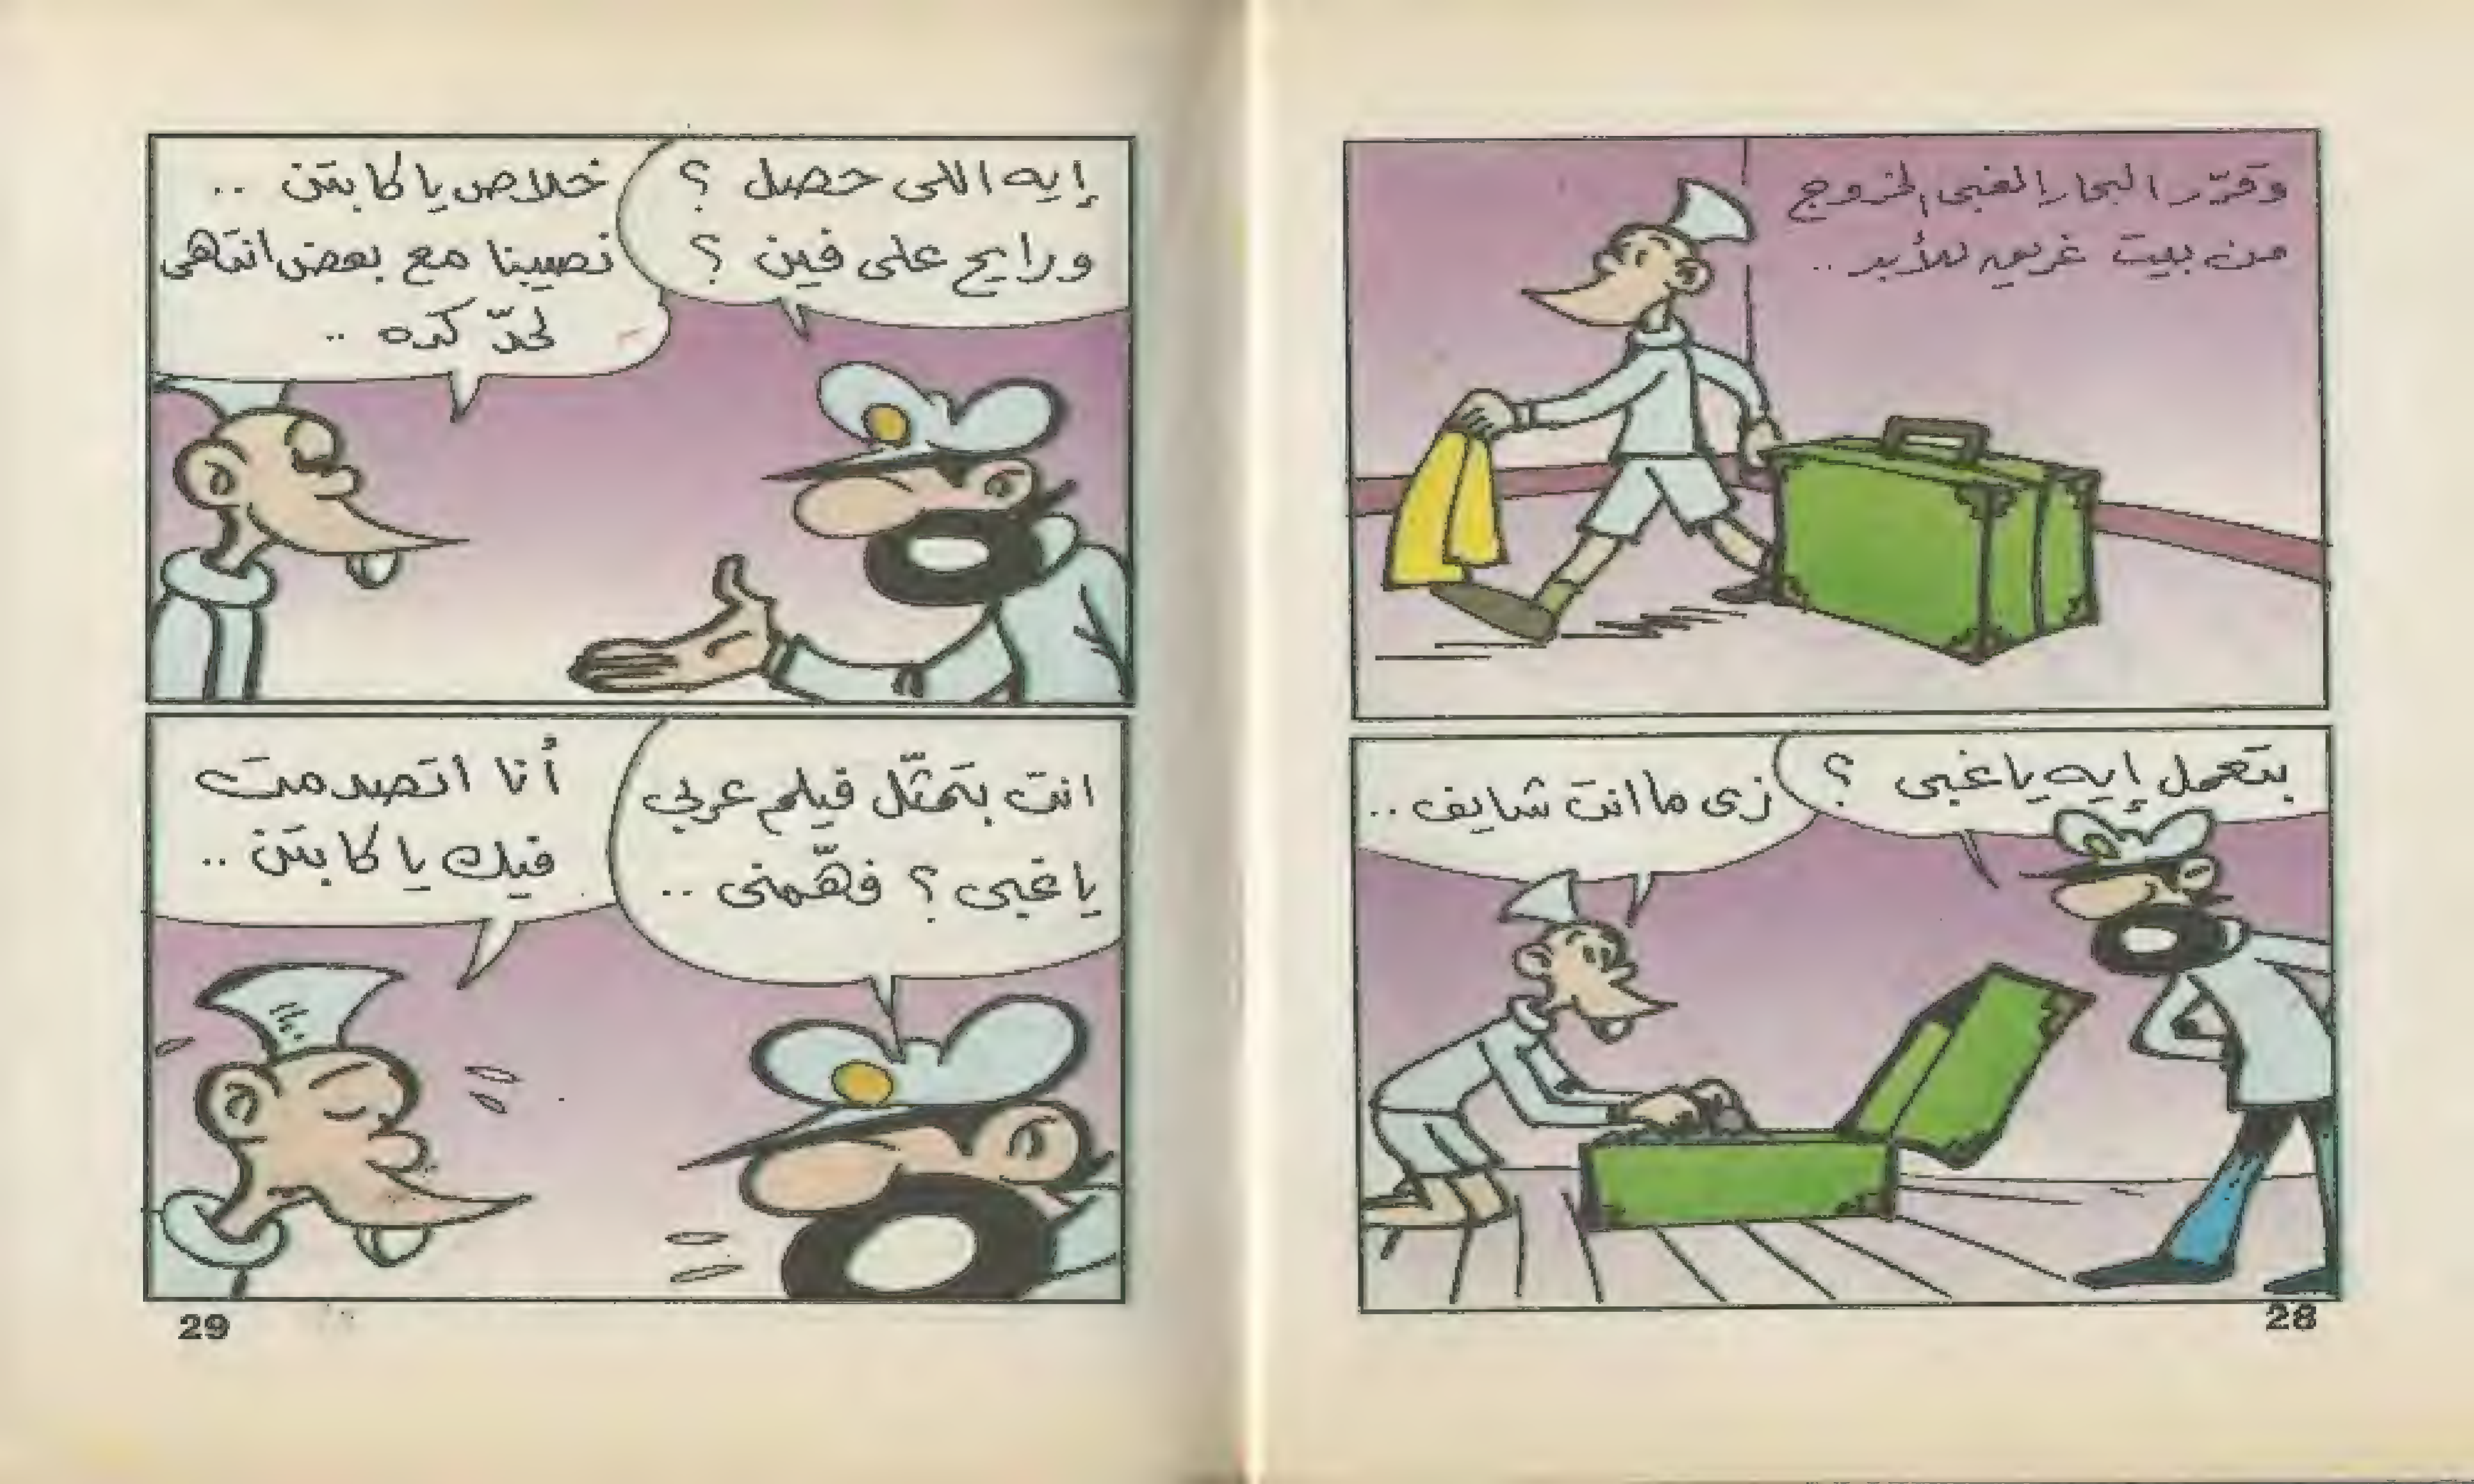 وقرّر البحار الغبى الخروج
من بيت غريب للأبد ..
بتعمل إيه ياغبى ؟
زى ما انت شايف ..
28
إيه اللى حصل ؟
ورايح على فين ؟
خلاص يا كابتن ..
نصيبنا مع بعض انتهى
لحدّ كده ..
انت بتمثّل فيلم عربي
ياغبى ؟ فهّمنى ..
أنا اتصدمت
فيك يا كابتن ..
29